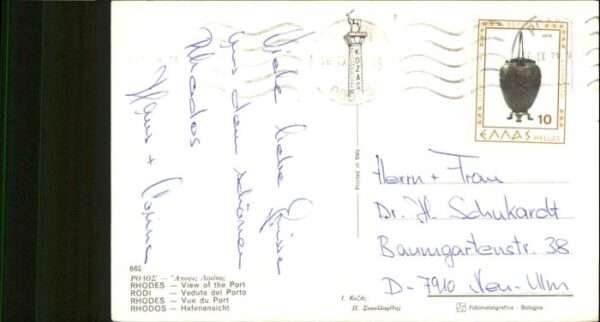 Viele liebe Grüsse
aus dem schönen
Rhodos
Hans +
KOZAS
Printed in Italy
ΕΛΛΑΣ HELLAS
10
Herrn + Frau
Dr. H. Schukardt
Baumgartenstr. 38
D-7910 Neu-Ulm
662
ΡΟΔΟΣ — Ἄποψις Λιμένος
RHODES — View of the Port
RODI — Veduta del Porto
RHODES — Vue du Port
RHODOS — Hafenansicht
Fotometalgrafica - Bologna